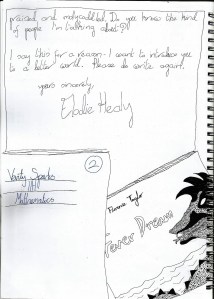 praised and mollycoddled. Do you know the kind
of people I'm talking about?!
I say this for a reason - I want to introduce you
to a better world. Please do write again.
yours sincerely,
Elodie Healy
2
Verity Sparks
Mathematics
Taylor
Fever Dream